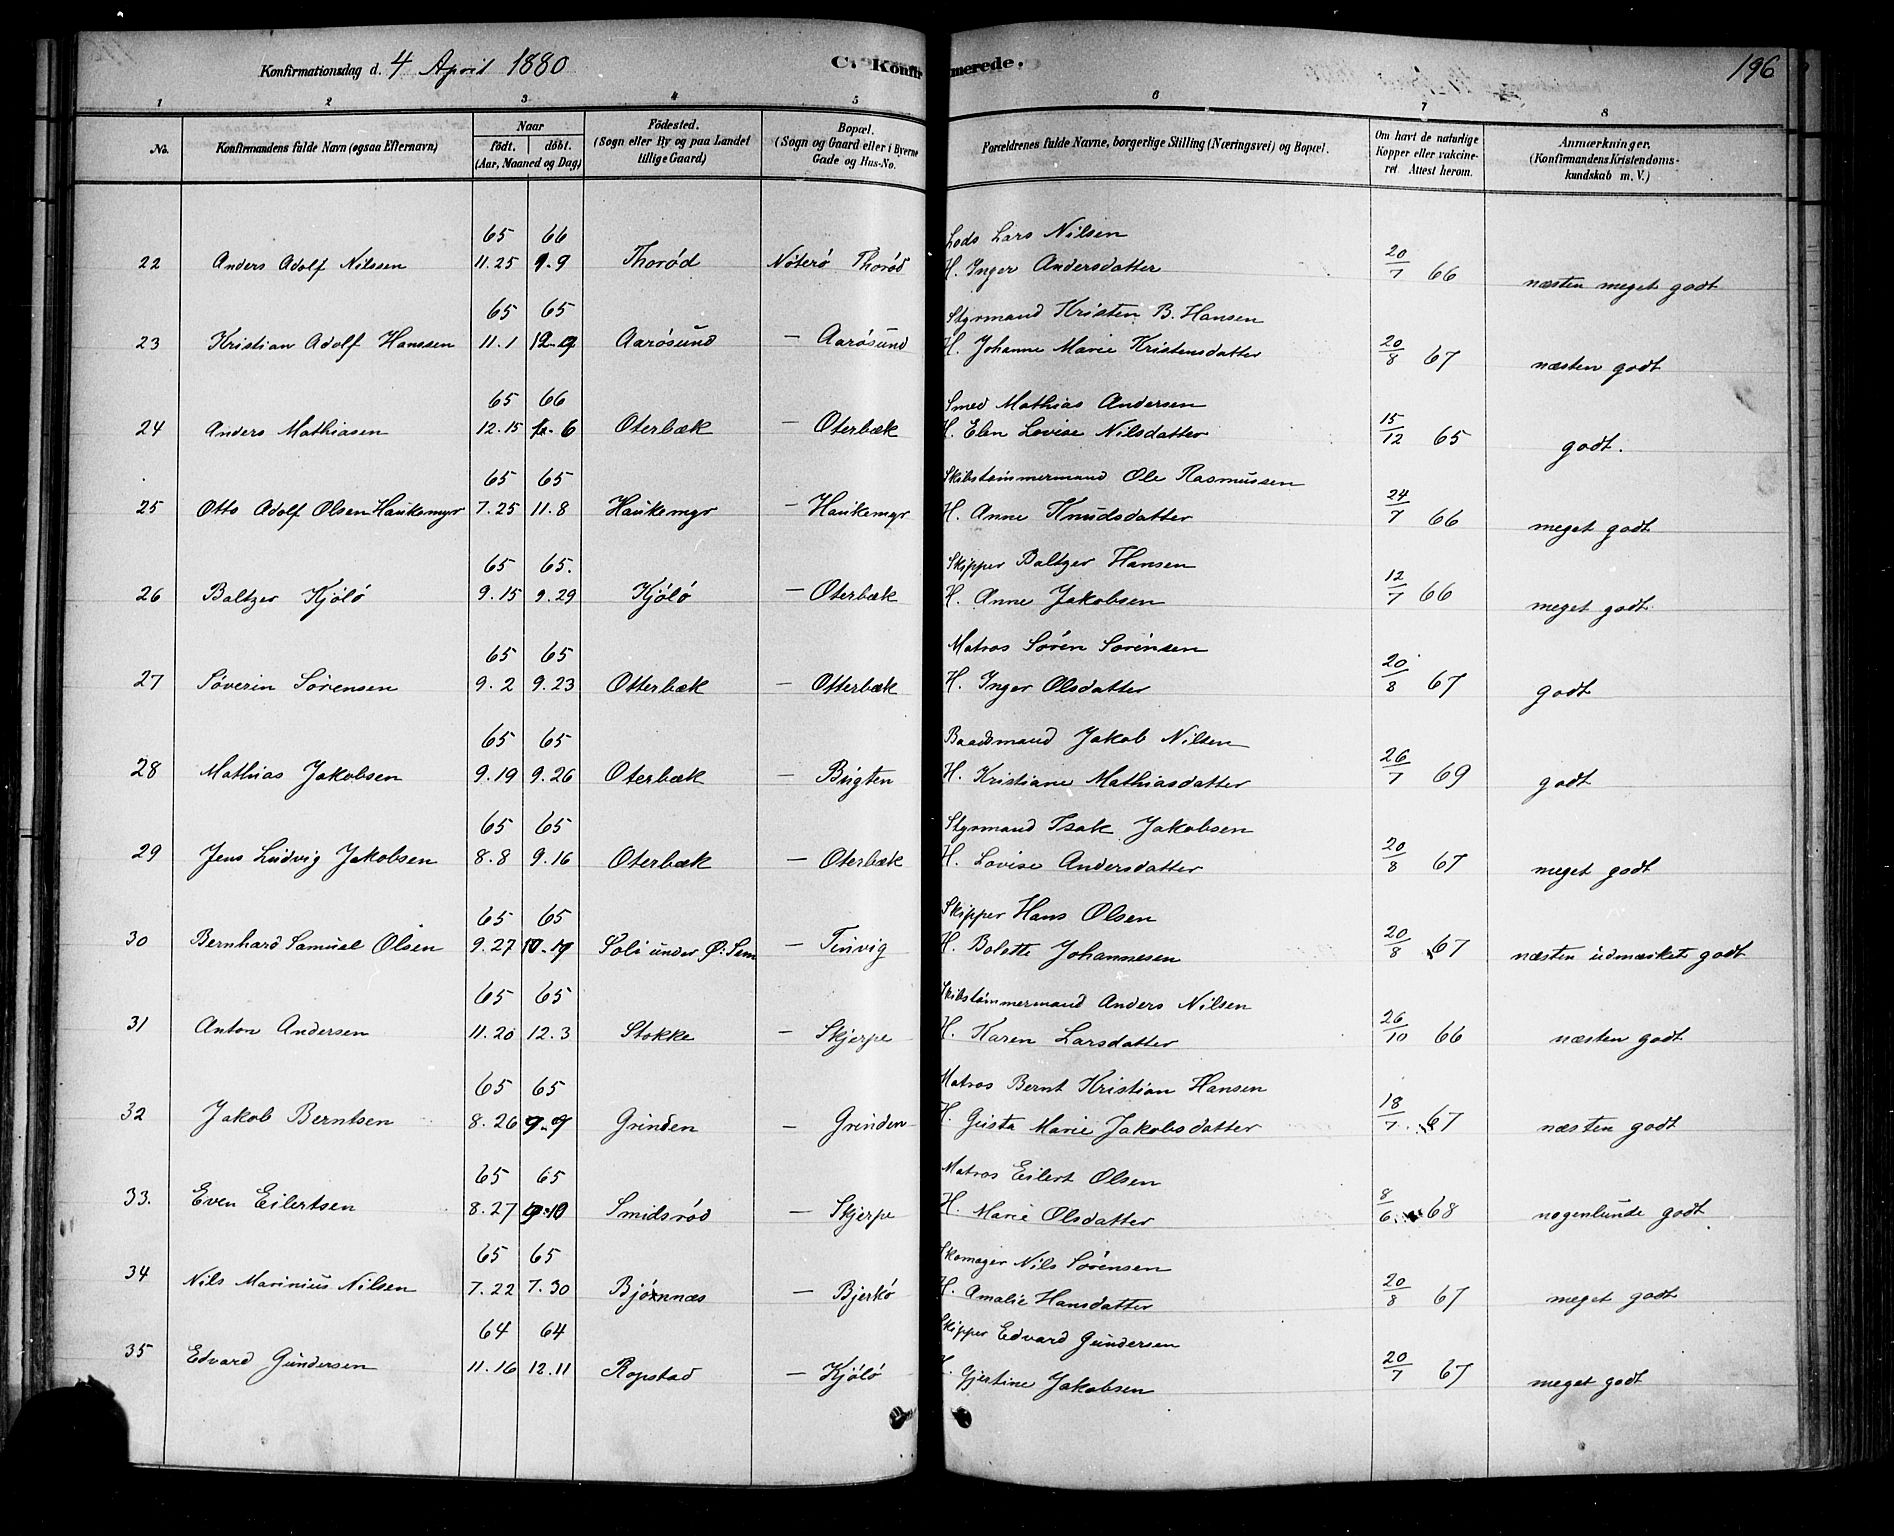 Konfirmationsdag d. 4 April 1880
C. Konfirmerede.
196
1 2 3 4 5 6 7 8
No. Konfirmandens fulde Navn (ogsaa Efternavn) Naar födt. döbt. (Aar, Maaned og Dag) Födested. (Sogn eller By og paa Landet tillige Gaard) Bopæl. (Sogn og Gaard eller i Byerne Gade og Hus-No. Forældrenes fulde Navne, borgerlige Stilling (Næringsvei) og Bopæl. Om havt de naturlige Kopper eller vakcineret Attest herom. Anmærkninger. (Konfirmandens Kristendomskundskab m. V.)
65 66 Lods Lars Nilsen
22 Anders Adolf Nilssen 11.25 9 Thorød Nøterø Thorød H. Inger Andersdatter 20/7 66 næsten meget godt
65 65 Styrmand Kristen B. Hansen
23 Kristian Adolf Hanssen 11.1 Aarøsund — Aarøsund H. Johanne Marie Kristensdatter 20/8 67 næsten godt
65 66 Smed Mathias Andersen
24 Anders Mathiasen 12.15 6 Oterbæk — Oterbæk H. Elen Lovise Nilsdatter 15/12 65 godt.
65 65 Skibstømmermand Ole Rasmussen
25 Otto Adolf Olsen Haukemyr 7.25 11.8 Haukemyr — Haukemyr H. Anne Knudsdatter 24/7 66 meget godt
65 65. Skipper Baltzer Hansen
26 Baltzer Kjølø 9.15 9.29 Kjølø — Oterbæk H. Anne Jakobsen 12/7 66 meget godt
65 65 Matros Søren Sørensen
27 Søverin Sørensen 9.2 9.23 Otterbæk — Otterbæk H. Inger Olsdatter 20/8 67 godt
65 65 Baadsmand Jakob Nilsen
28 Mathias Jakobsen 9.19 9.26 Oterbæk — Bugten H. Kristiane Mathiasdatter 26/7 69 godt
65 65 Styrmand Isak Jakobsen
29 Jens Ludvig Jakobsen 8.8 9.16 Oterbæk — Oterbæk H. Lovise Andersdatter 20/8 67 meget godt
65 65 Skipper Hans Olsen
30 Bernhard Samuel Olsen 9.27 Soli under Ø. Sem — Tinvig H. Bolette Johannesen 20/8 67 næsten udmærket godt
65 65 Skibstømmermand Anders Nilsen
31 Anton Andersen 11.20 12.3 Stokke — Skjerpe H. Karen Larsdatter 26/10 66 næsten godt
65 65 Matros Bernt Kristian Hansen
32 Jakob Berntsen 8.26 Grinden — Grinden H. Gusta Marie Jakobsdatter 18/7 67 næsten godt
65 65 Matros Eilert Olsen
33. Even Eilertsen 8.27 Smidsrød — Skjerpe H. Marie Olsdatter 8/6 68 nogenlunde godt
65 65 Skomager Nils Sørensen
34 Nils Marinius Nilsen 7.22 7.30 Bjønnæs — Bjerkø H. Amalie Hansdatter 20/8 67 meget godt
64 64 Skipper Edvard Gundersen
35 Edvard Gundersen 11.16 12.11 Ropstad — Kjølø H. Gjertine Jakobsen 20/7 67 meget godt